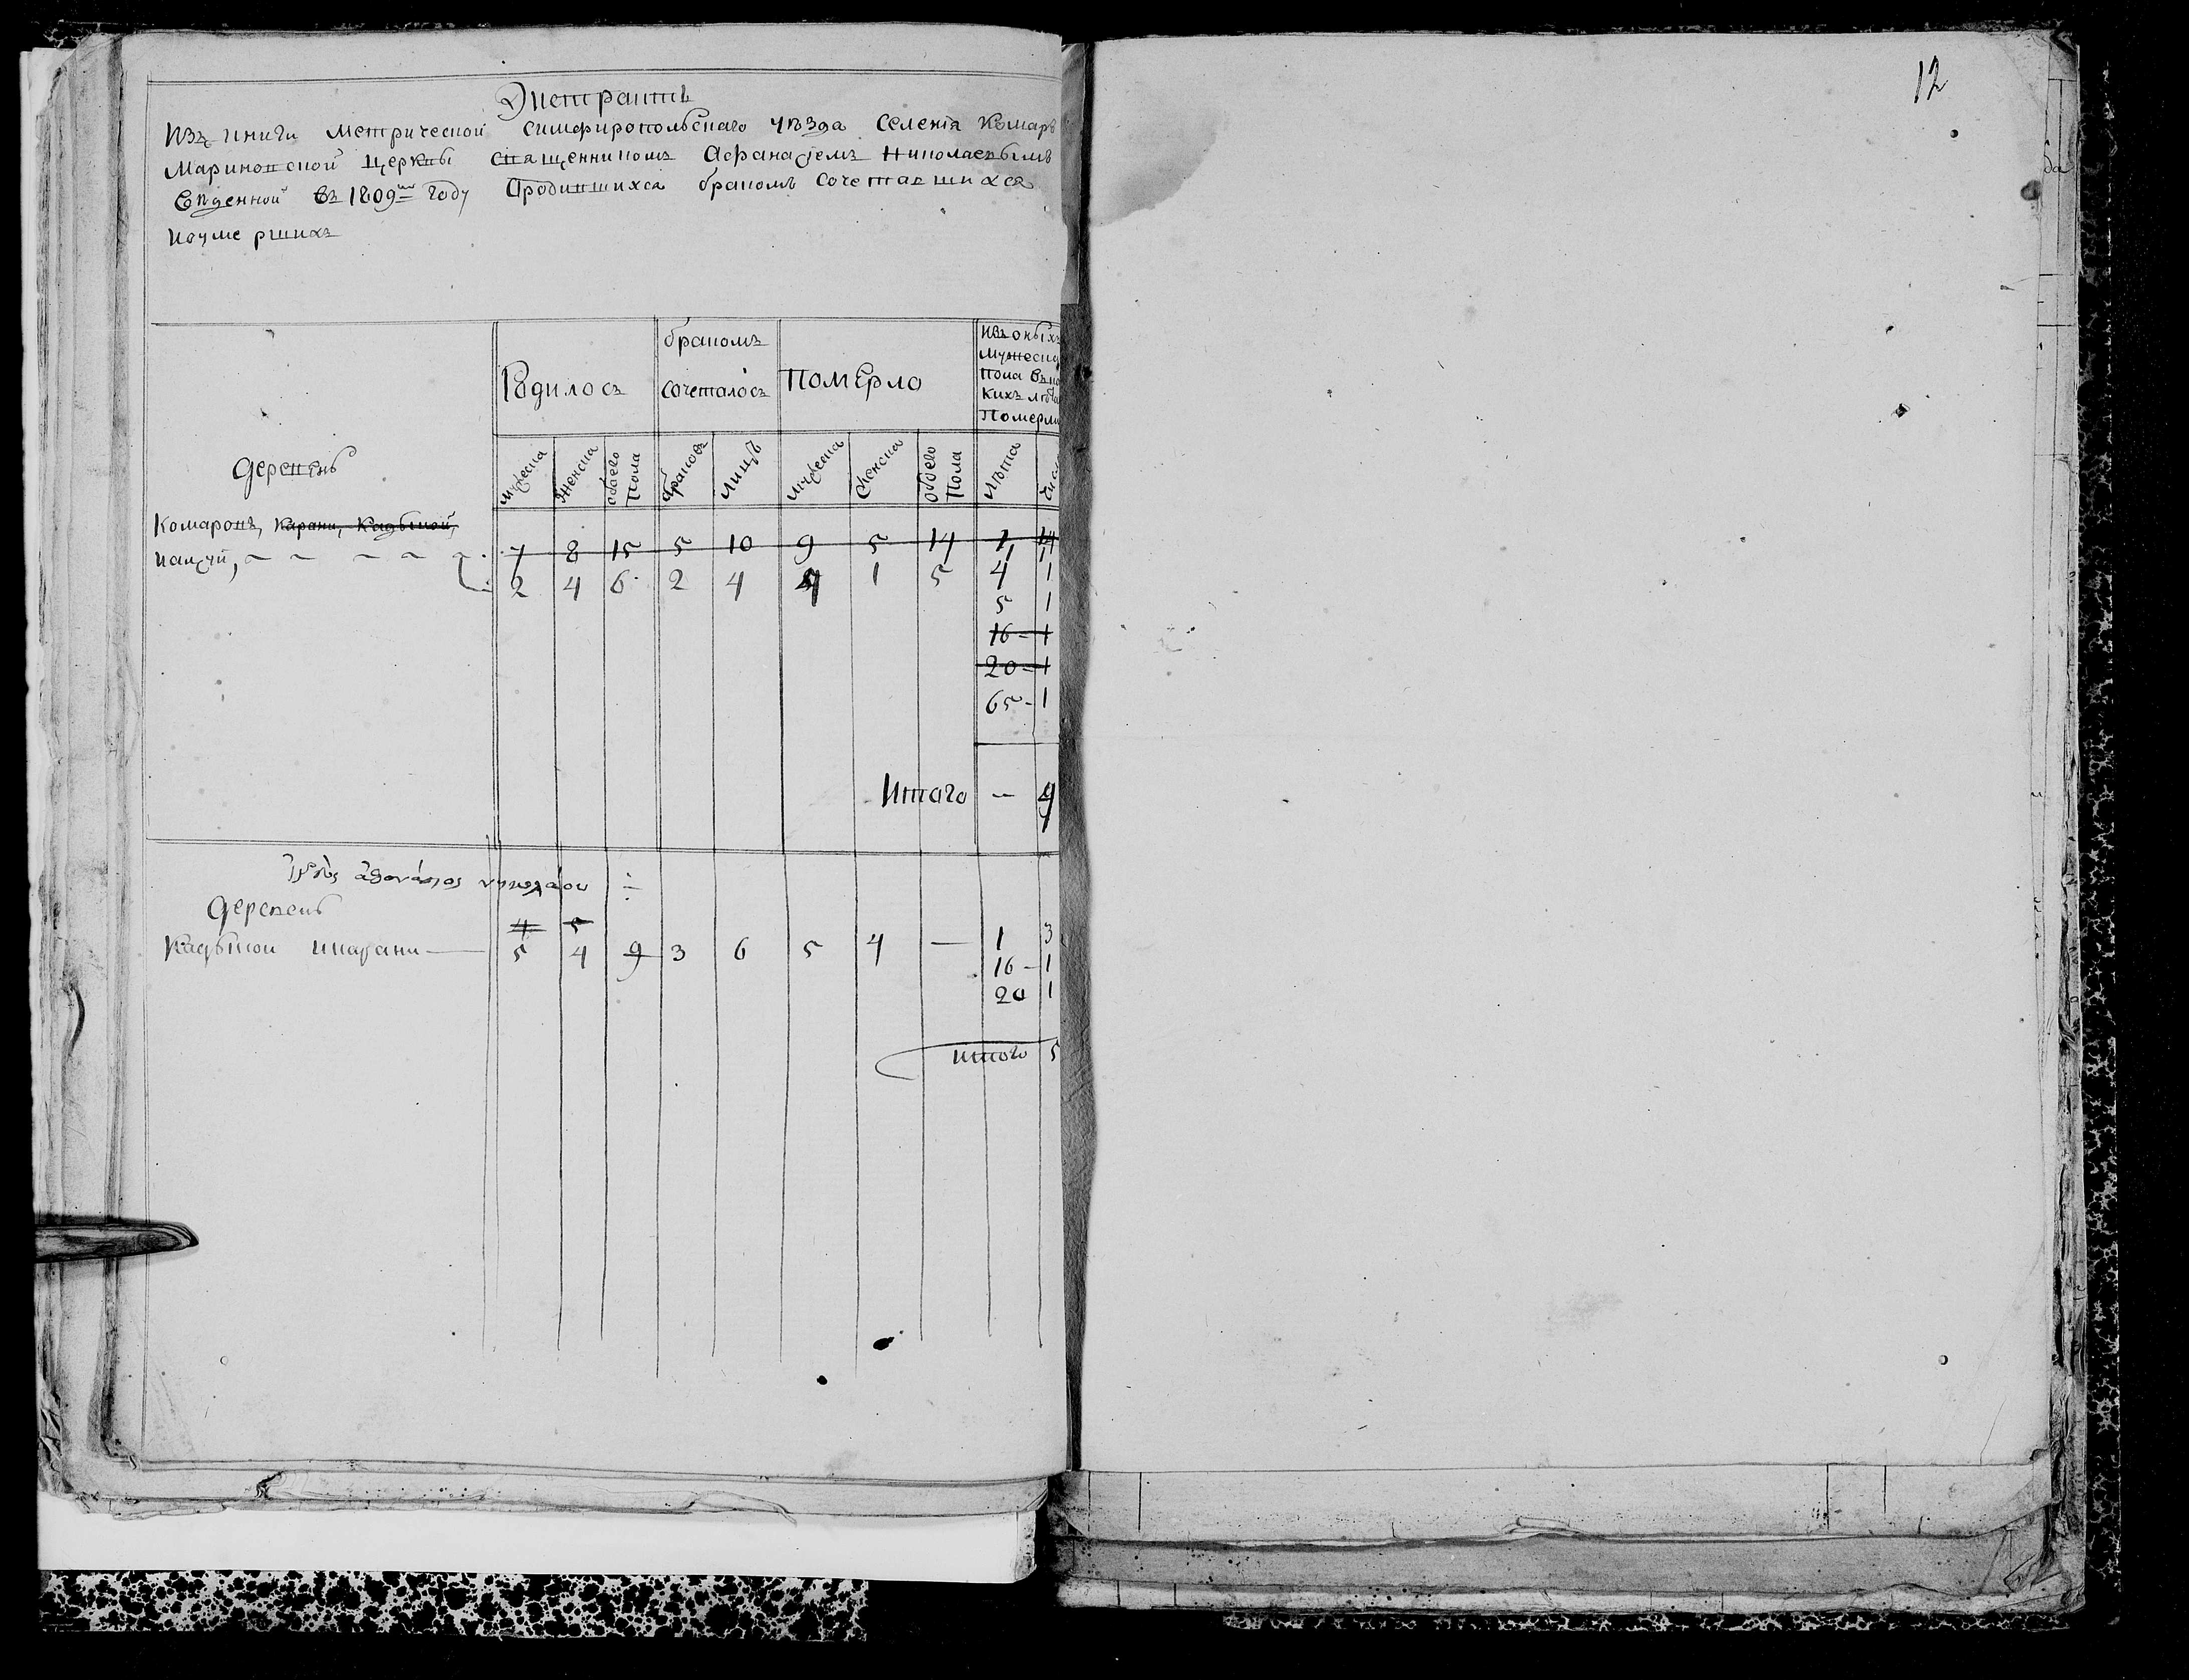 12
Экстрактъ
Изъ книги метрической симфиропольскаго уѣзда Селенія Комаръ
Мариновской церквы священникомъ Афанасіемъ Николаевымъ
Веденной въ 1809мъ году Ородившихся бракомъ сочетавшихся
иоумершихъ
Деревень
Родилось
бракомъ сочеталось
Померло
изъ оныхъ
мужеска
пола въ ка
кихъ лѣта
Померли
мужеска женска обоего пола браковъ лицъ мужеска женска обоего пола лѣта чис
Комаровъ, Карани, Кадыкой,
7 8 15 5 10 9 5 14 1 4
камчи, 1 1
2 4 6 2 4 4 1 5 4 1
5 1
16 - 1
20 - 1
65 - 1
Итого - 4
ἱερεὺς ἀθανάσιος νηκολάου
Деревень
4 5
Кадыкои икарани 5 4 9 3 6 5 4 — 1 3
16 - 1
20 1
итого 5